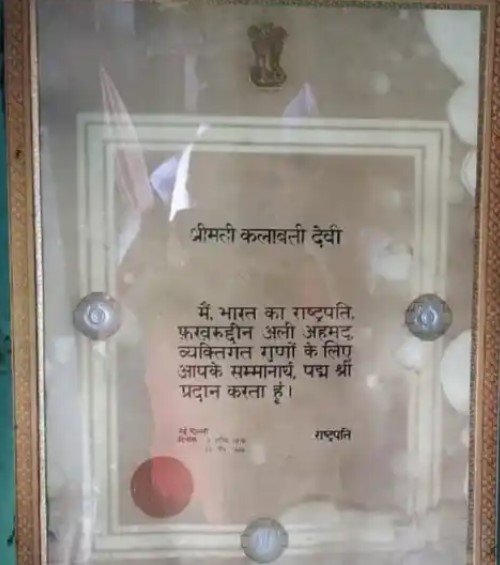 श्रीमती कलावती देवी
मैं, भारत का राष्ट्रपति,
फ़ख़रुद्दीन अली अहमद,
व्यक्तिगत गुणों के लिए
आपके सम्मानार्थ, पद्म श्री
प्रदान करता हूं।
नई दिल्ली
दिनांक
राष्ट्रपति